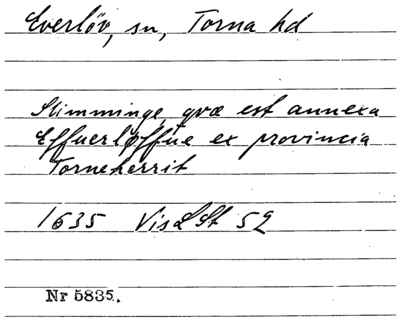 Everlöv, sn, Torna hd
Slimminge, qvæ est annexa
Effuerløffue ex provincia
Torneherrit
1635 VisLSt 52
Nr 5835.